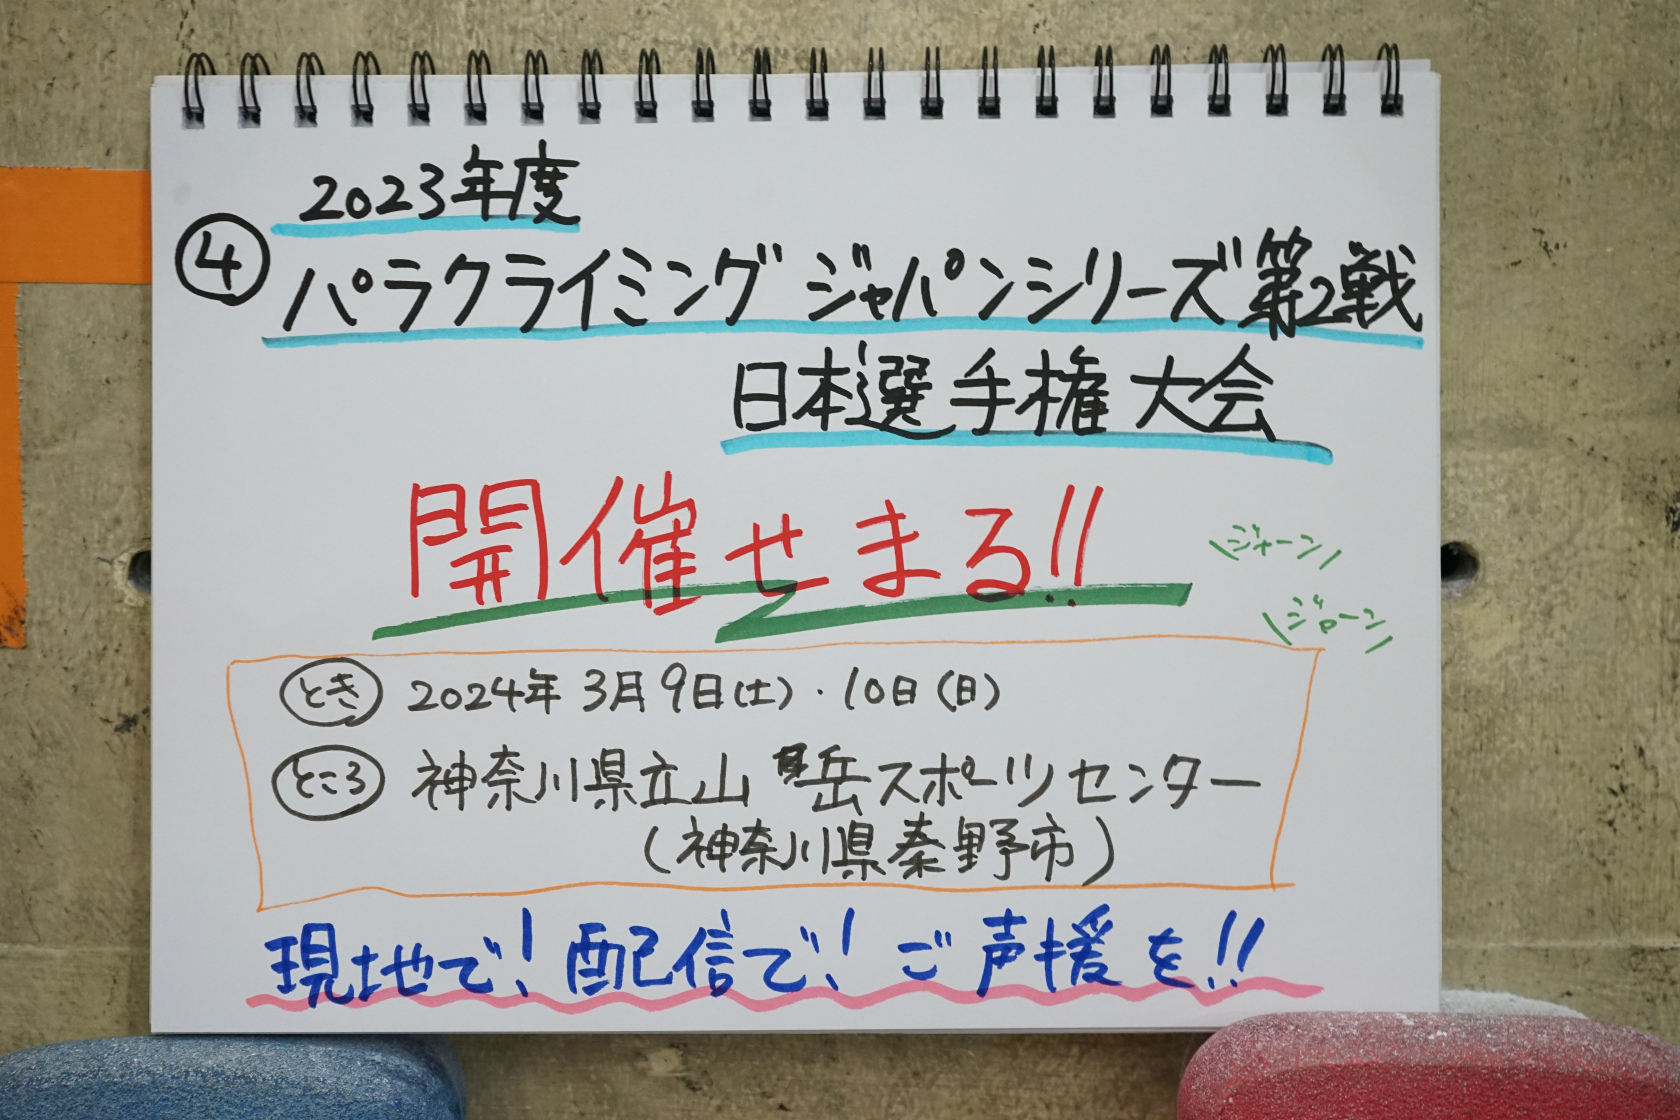 2023年度
④ パラクライミング ジャパンシリーズ 第2戦
日本選手権 大会
開催せまる!!
ジャーン
ジャーン
とき 2024年 3月9日(土)・10日(日)
ところ 神奈川県立山岳スポーツセンター
(神奈川県秦野市)
現地で！配信で！ご声援を!!